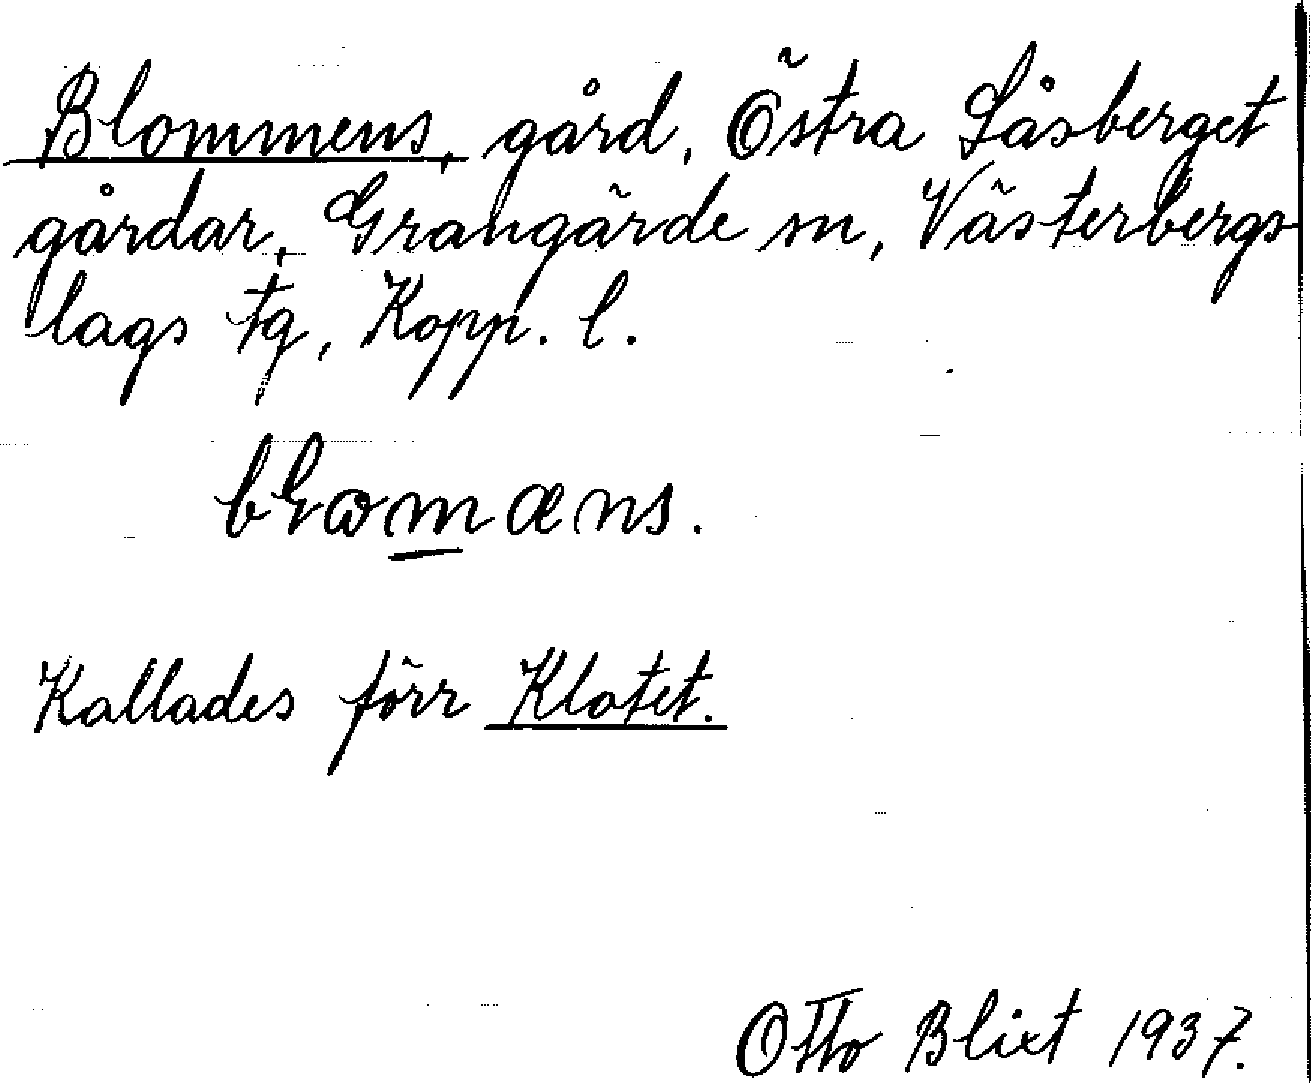 Blommens, gård, Östra Låsberget
gårdar, Grangärde sn, Västerbergs-
lags tg, Kopp. l.
bɽωmæns.
Kallades förr Klotet.
Otto Blixt 1937.